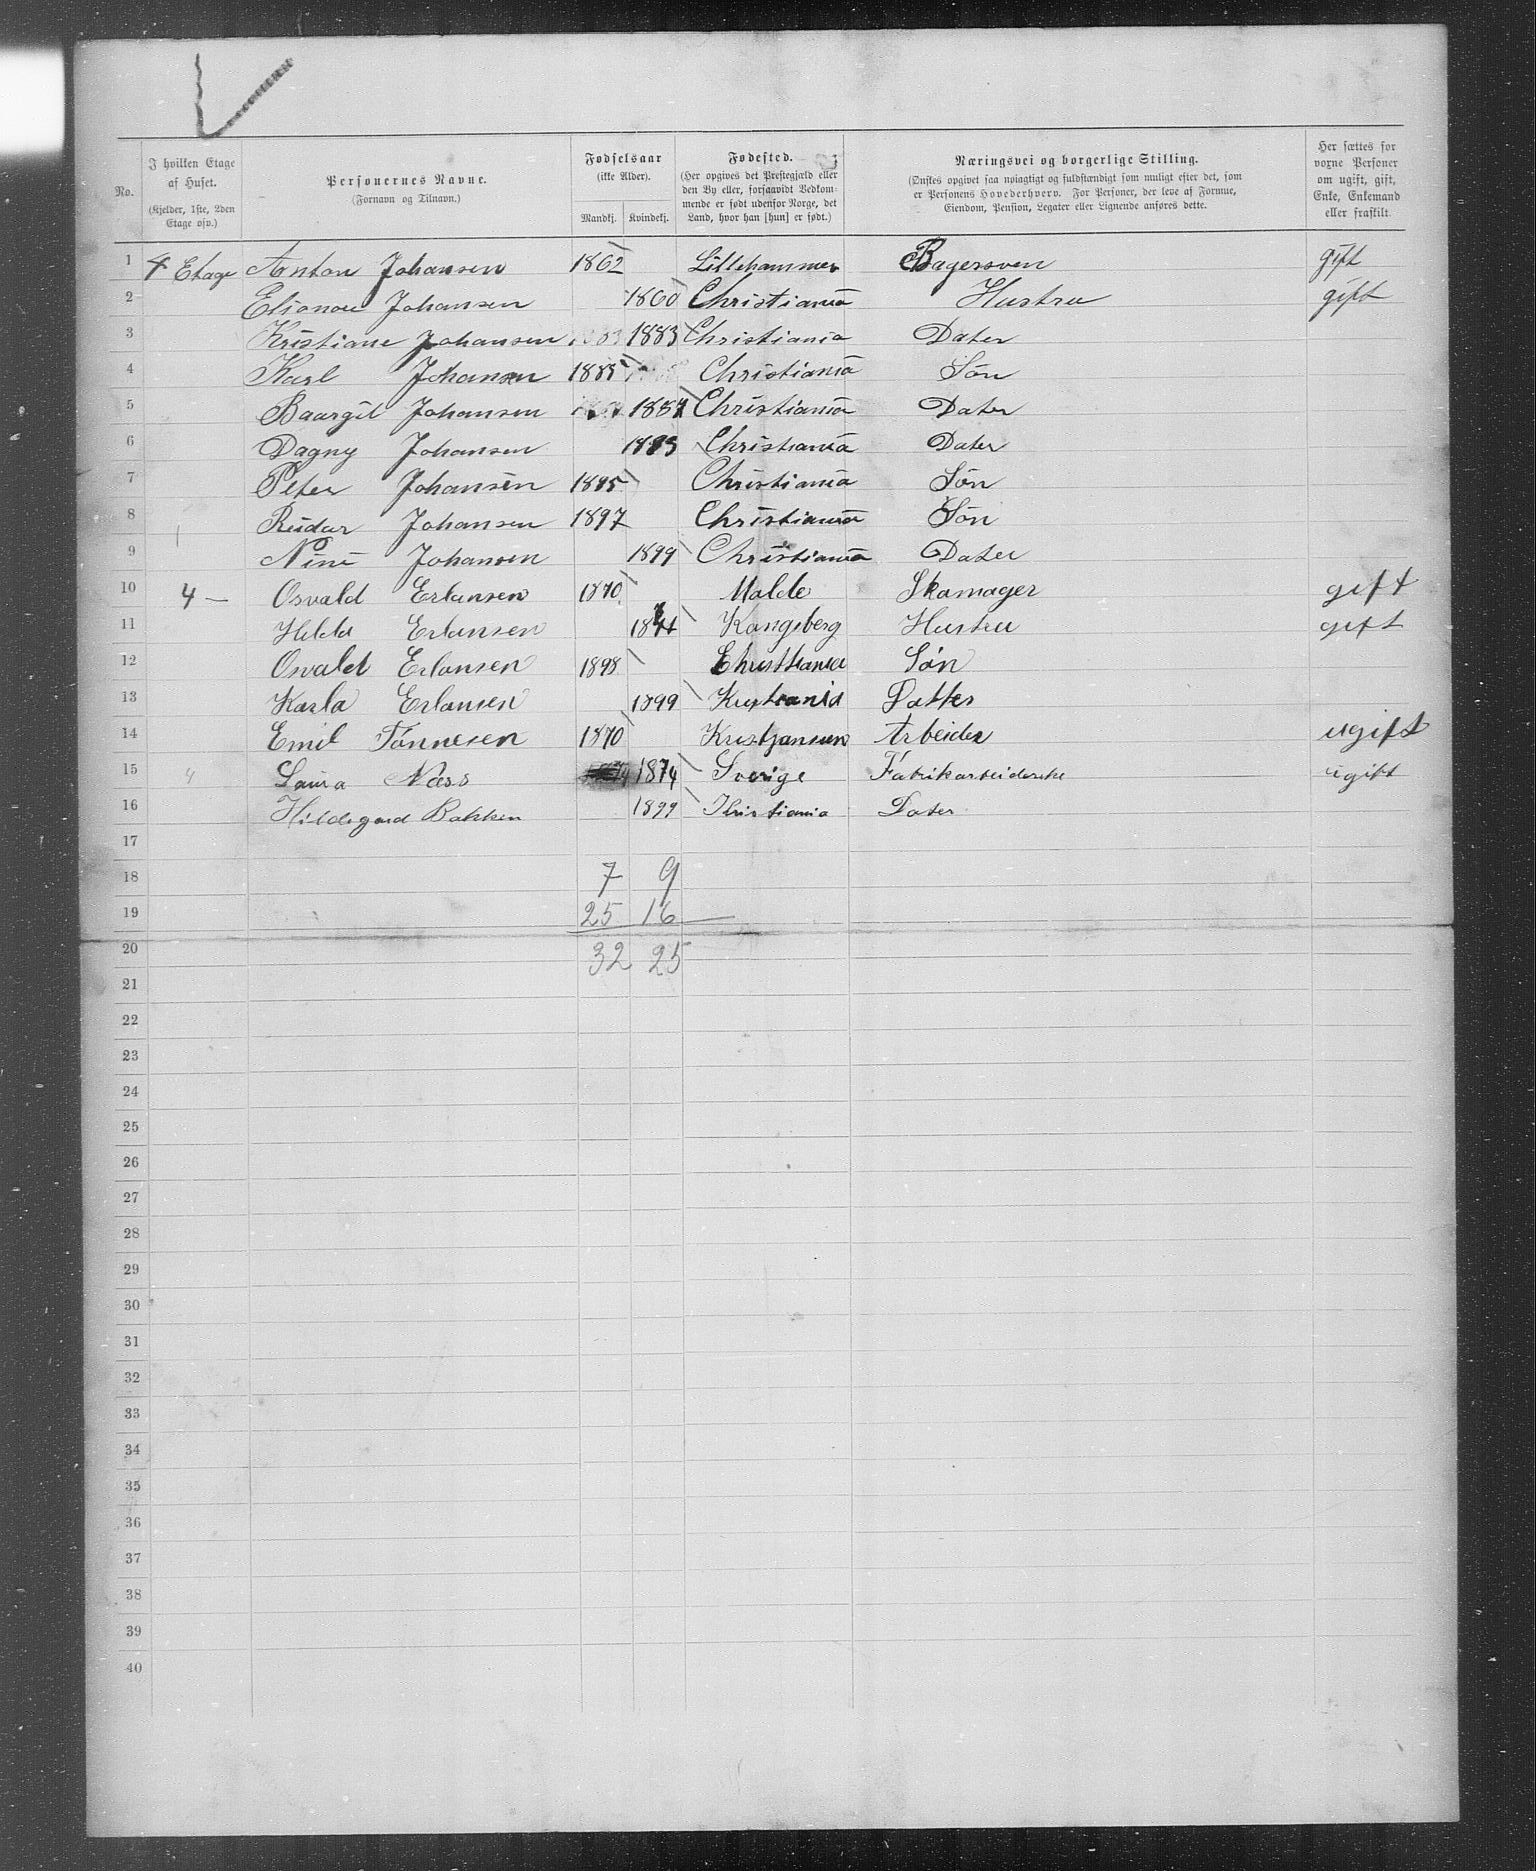 No.
I hvilken Etage af Huset.
(Kjelder, 1ste, 2den Etage osv.)
Personernes Navne.
(Fornavn og Tilnavn.)
Fødselsaar
(ikke Alder).
Mandkj. Kvindekj.
Fødested.
(Her opgives det Prestegjæld eller
den By eller, forsaavidt Vedkom-
mende er født udenfor Norge, det
Land, hvor han [hun] er født.)
Næringsvei og borgerlige Stilling.
(Ønskes opgivet saa nøiagtigt og fuldstændigt som muligt efter det, som
er Personens Hovederhverv. For Personer, der leve af Formue,
Eiendom, Pension, Legater eller Lignende anføres dette.
Her sættes for
voxne Personer
om ugift, gift,
Enke, Enkemand
eller fraskilt.
1 4 Etage Anton Johansen 1862 Lillehammer Bagersven gift
2 Elionou Johansen 1860 Christiania Hustru gift
3 Kristiane Johansen 1883 Christiania Dater
4 Karl Johansen 1885 Christiania Søn
5 Baargil Johansen 1887 Christiania Dater
6 Dagny Johansen 1893 Christiania Dater
7 Peter Johansen 1895 Christiania Søn
8 Reidar Johansen 1897 Christiania Søn
9 Nini Johansen 1899 Christiania Dater
10 4 — Osvald Erlansen 1870 Molde Skomager gift
11 Hilda Erlansen 1874 Kongsberg Hustru gift
12 Osvald Erlansen 1898 Christiania Søn
13 Karla Erlansen 1899 Kristiania Datter
14 Emil Tönnesen 1870 Kristjansun Arbeider ugift
15 4 Laura Næss 1874 Sverige Fabrikarbeiderske ugift
16 Hildegard Bakken 1899 Kristiania Dater
17
18 7 9
19 25 16
20 32 25
21
22
23
24
25
26
27
28
29
30
31
32
33
34
35
36
37
38
39
40